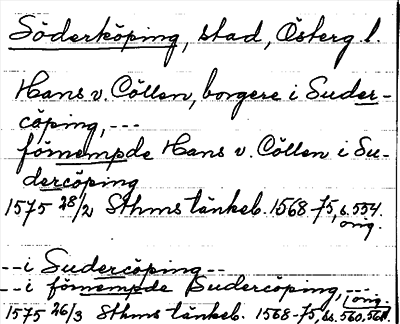 Söderköping, stad, Österg l.
Hans v. Cöllen, borgere i Suder-
cöping, ---
förnempde Hans v. Cöllen i Su-
dercöping
1575 28/2 Sthms tänkeb. 1568-75, s. 554.
orig.
-- i Sudercöping --
-- i förnempde Sudercöping, ---
1575 26/3 Sthms tänkeb. 1568-75, ss. 560, 561.
orig.